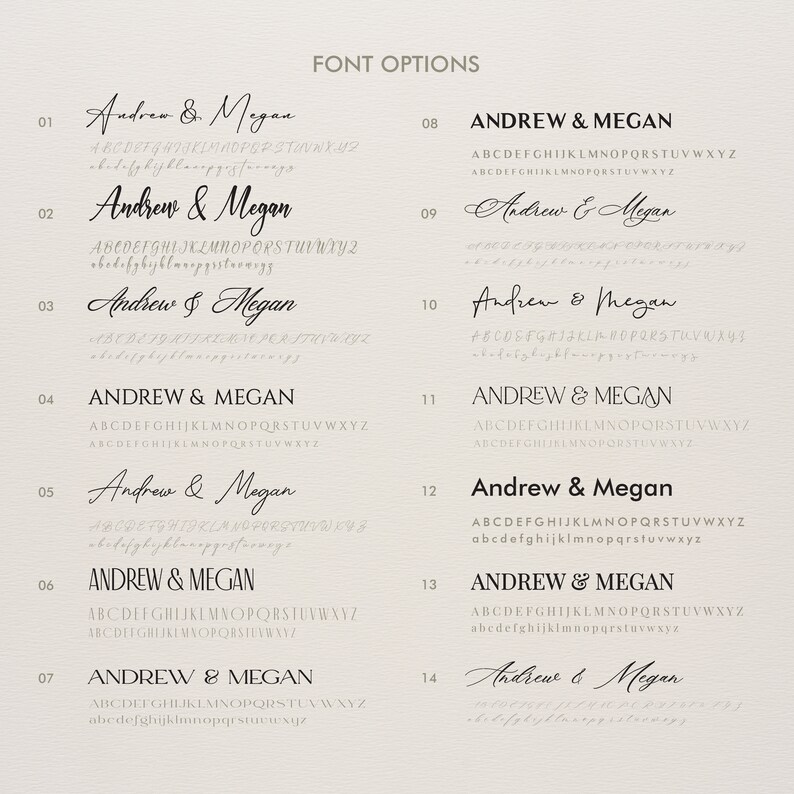 FONT OPTIONS
01
Andrew & Megan
ABCDEFGHIJKLMNOPQRSTUVWXYZ
abcdefghijklmnopqrstuvwxyz
02
Andrew & Megan
ABCDEFGHIJKLMNOPQRSTUVWXYZ
abcdefghijklmnopqrstuvwxyz
03
Andrew & Megan
ABCDEFGHIJKLMNOPQRSTUVWXYZ
abcdefghijklmnopqrstuvwxyz
04
ANDREW & MEGAN
ABCDEFGHIJKLMNOPQRSTUVWXYZ
ABCDEFGHIJKLMNOPQRSTUVWXYZ
05
Andrew & Megan
ABCDEFGHIJKLMNOPQRSTUVWXYZ
abcdefghijklmnopqrstuvwxyz
06
ANDREW & MEGAN
ABCDEFGHIJKLMNOPQRSTUVWXYZ
ABCDEFGHIJKLMNOPQRSTUVWXYZ
07
ANDREW & MEGAN
ABCDEFGHIJKLMNOPQRSTUVWXYZ
abcdefghijklmnopqrstuvwxyz
08
ANDREW & MEGAN
ABCDEFGHIJKLMNOPQRSTUVWXYZ
ABCDEFGHIJKLMNOPQRSTUVWXYZ
09
Andrew & Megan
ABCDEFGHIJKLMNOPQRSTUVWXYZ
abcdefghijklmnopqrstuvwxyz
10
Andrew & Megan
ABCDEFGHIJKLMNOPQRSTUVWXYZ
abcdefghijklmnopqrstuvwxyz
11
ANDREW & MEGAN
ABCDEFGHIJKLMNOPQRSTUVWXYZ
ABCDEFGHIJKLMNOPQRSTUVWXYZ
12
Andrew & Megan
ABCDEFGHIJKLMNOPQRSTUVWXYZ
abcdefghijklmnopqrstuvwxyz
13
ANDREW & MEGAN
ABCDEFGHIJKLMNOPQRSTUVWXYZ
abcdefghijklmnopqrstuvwxyz
14
Andrew & Megan
ABCDEFGHIJKLMNOPQRSTUVWXYZ
abcdefghijklmnopqrstuvwxyz